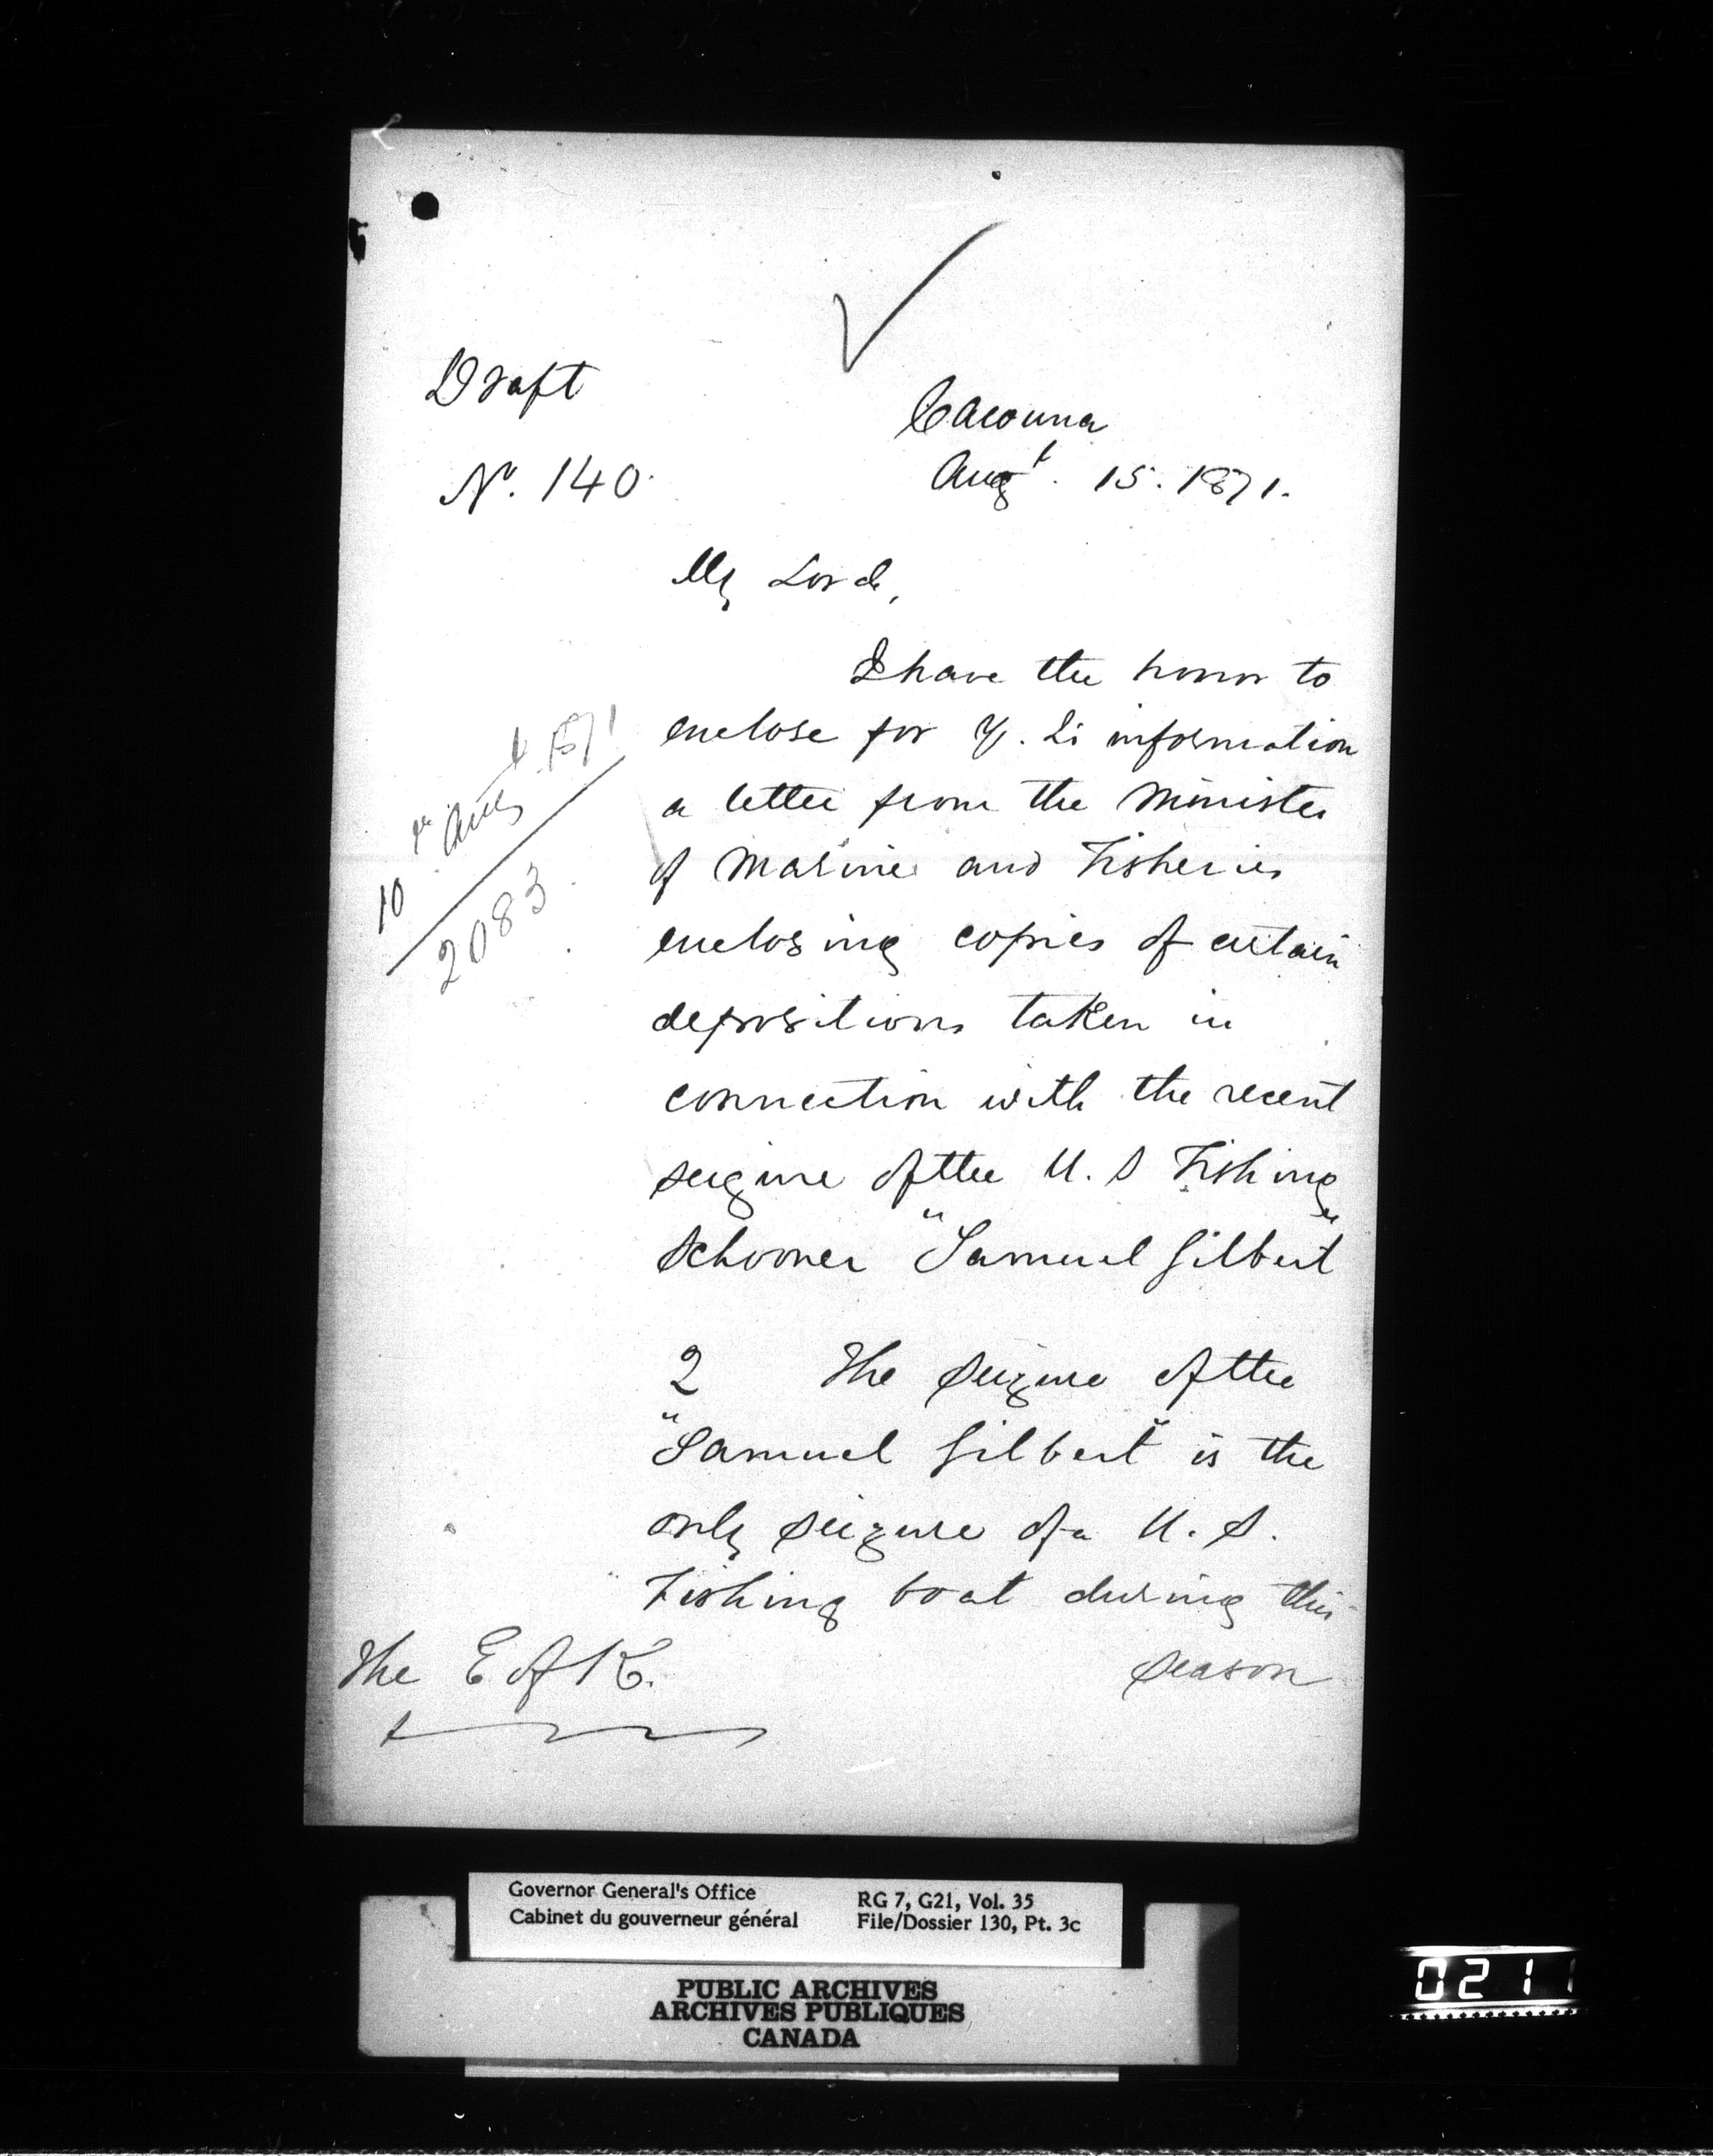 Draft
Cacouna
No. 140
Augt. 15. 1871.
My Lord,
I have the honor to
enclose for Y. Ls information
a letter from the Minister
of Marine and Fisheries
enclosing copies of certain
depositions taken in
connection with the recent
seizure of the U. S Fishing
schooner "Samuel Gilbert"
10 Augt 1871
2083
2 The seizure of the
"Samuel Gilbert" is the
only seizure of a U. S.
Fishing boat during this
The E of K.
season
Governor General's Office
Cabinet du gouverneur général
RG 7, G21, Vol. 35
File/Dossier 130, Pt. 3c
PUBLIC ARCHIVES
ARCHIVES PUBLIQUES
CANADA
0211